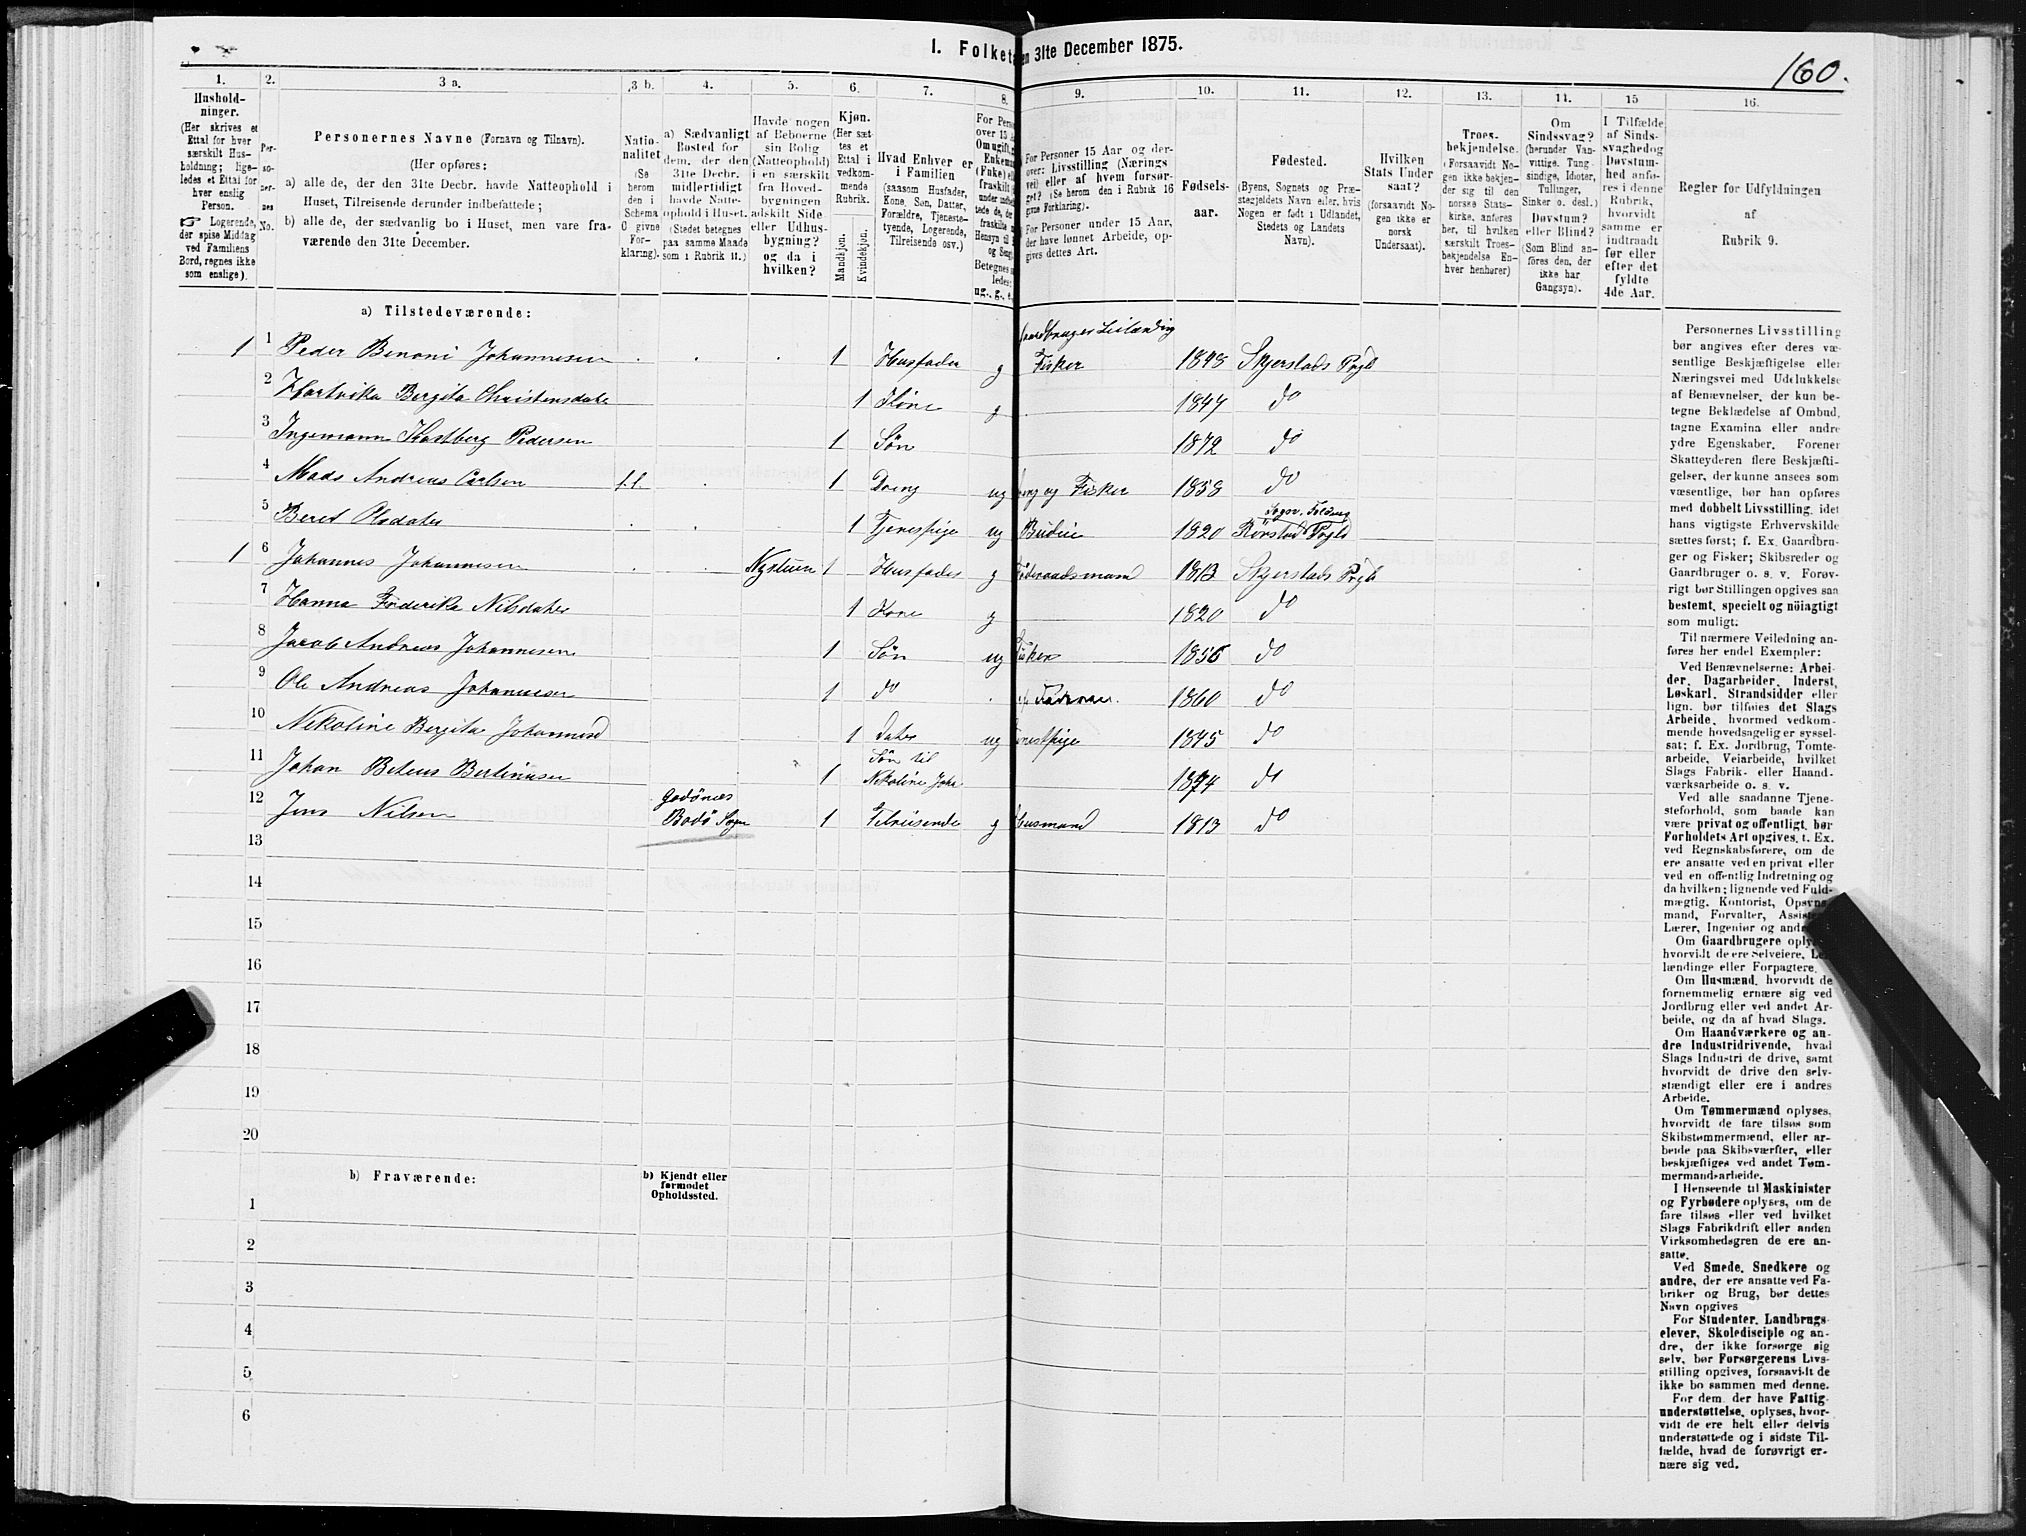 1. Folketæ en 31te December 1875.
160.
1. 2. 3 a. 3 b. 4. 5. 6. 7. 8. 9. 10. 11. 12. 13. 14. 15 16.
Hushold-
ninger.
(Her skrives et
Ettal for hver
særskilt Hus-
holdning; lige-
ledes et Ettal for
hver enslig
Person.
☞ Logerende,
der spise Middag
ved Familiens
Bord, regnes ikke
som enslige).
Per-
so-
ner-
nes
No.
Personernes Navne (Fornavn og Tilnavn).
(Her opføres:
a) alle de, der den 31te Decbr. havde Natteophold i
Huset, Tilreisende derunder indbefattede;
b) alle de, der sædvanlig bo i Huset, men vare fra-
værende den 31te December.
Natio-
nalitet
(Se
herom
den i
Schema
O givne
For-
klaring).
a) Sædvanligt
Bosted for
dem, der den
31te Decbr.
midlertidigt
havde Natte-
ophold i Huset.
(Stedet betegnes
paa samme Maade
som i Rubrik 11.)
Havde nogen
af Beboerne
sin Bolig
(Natteophold)
i en særskilt
fra Hoved-
bygningen
adskilt Side
eller Udhus-
bygning?
og da i
hvilken?
Kjøn.
(Her sæt-
tes et
Ettal i
vedkom-
mende
Rubrik.
Mandkjøn.
Kvindekjøn.
Hvad Enhver er
i Familien
(saasom Husfader,
Kone, Søn, Datter,
Forældre, Tjeneste-
tyende, Logerende,
Tilreisende osv.)
For Perso
over 15 A
Om ugift,
Enkema
(Fuke) el
fraskilt
under indbe
tede de, de
fraskilte
Hensyn til
og Seng
Betegnes
ledes:
ug., g., e.
For Personer 15 Aar og der-
over: Livsstilling (Nærings
vei) eller af hvem forsør-
get? (Se herom den i Rubrik 16
givne Forklaring).
For Personer under 15 Aar,
der have lønnet Arbeide, op-
gives dettes Art.
Fødsels-
aar.
Fødested.
(Byens, Sognets og Præ-
stegjeldets Navn eller, hvis
Nogen er født i Udlandet,
Stedets og Landets
Navn).
Hvilken
Stats Under
saat?
(forsaavidt No-
gen ikke er
norsk
Undersaat).
Troes-
bekjendelse.
(Forsaavidt No-
gen ikke bekjen-
der sig til den
norske Stats-
kirke, anføres
her, til hvilken
særskilt Troes-
bekjendelse En-
hver henhører)
Om
Sindssvag?
(herunder Van-
vittige, Tung-
sindige, Idioter,
Tullinger,
Sinker o. desl.)
Døvstum?
eller Blind?
(Som Blind an-
føres den, der
ikke har
Gangsyn).
I Tilfælde
af Sinds-
svaghed og
Døvstum-
hed anfø-
res i denne
Rubrik,
hvorvidt
samme er
indtraadt
før eller
efter det
fyldte
4de Aar.
Regler for Udfyldningen
af
Rubrik 9.
a) Tilstedeværende:
1 1 Peder Benoni Johannesen 1 Husfader g Gaardbruger Leilænding Fisker 1848 Skjerstads Pgld
2 Hartvika Bergita Christensdater 1 Kone g 1847 do
3 Ingemann Hastberg Pedersen 1 Søn 1872 do
4 Mads Andreas Carlsen 1 Dreng ug Dreng og Fisker 1858 do
5 Beret Olsdater 1 Tjenestpige ug Budeie 1820 Rörstad Pgld
1 6 Johannes Johannesen Nystuen 1 Husfader g Föderaadsmand 1813 Skjerstads Pgld
7 Hanna Frederika Nilsdater 1 Kone g 1820 do
8 Jacob Andreas Johannesen 1 Søn ug Fisker 1856 do
9 Ole Andreas Johannesen 1 do 1860 do
10 Nikoline Bergita Johannesd 1 Dater ug Tjenestpige 1845 do
11 Johan Beteus Bertinusen 1 Søn til Nikoline Joha 1874 do
12 Jens Nilsen Godönes Bodö Sogn 1 Tilreisende g Husmand 1813 do
13
14
15
16
17
18
19
20
b) Fraværende:
b) Kjendt eller
formodet
Opholdssted.
1
2
3
4
5
6
Personernes Livsstilling
bør angives efter deres væ-
sentlige Beskjæftigelse eller
Næringsvei med Udelukkelse
af Benævnelser, der kun be-
tegne Beklædelse af Ombud,
tagne Examina eller andre
ydre Egenskaber. Forener
Skatteyderen flere Beskjæfti-
gelser, der kunne ansees som
væsentlige, bør han opføres
med dobbelt Livsstilling, idet
hans vigtigste Erhvervskilde
sættes først; f. Ex. Gaardbru-
ger og Fisker; Skibsreder og
Gaardbruger o. s. v. Forøv-
rigt bør Stillingen opgives saa
bestemt, specielt og nöiagtigt
som muligt.
Til nærmere Veiledning an-
føres her endel Exempler:
Ved Benævnelserne: Arbei-
der, Dagarbeider, Inderst,
Løskarl, Strandsidder eller
lign. bør tilføies det Slags
Arbeide, hvormed vedkom-
mende hovedsagelig er syssel-
sat; f. Ex. Jordbrug, Tomte-
arbeide, Veiarbeide, hvilket
Slags Fabrik- eller Haand-
værksarbeide o. s. v.
Ved alle saadanne Tjene-
steforhold, som baade kan
være privat og offentligt, bør
Forholdets Art opgives, t. Ex.
ved Regnskabsførere, om de
ere ansatte ved en privat eller
ved en offentlig Indretning og
da hvilken; lignende ved Fuld-
mægtig, Kontorist, Opsyns-
mand, Forvalter, Assiste
Lærer, Ingeniør og and
Om Gaardbrugere oply
hvorvidt de ere Selveiere, Le
lændinge eller Forpagtere.
Om Husmænd, hvorvidt de
fornemmelig ernære sig ved
Jordbrug eller ved andet Ar-
beide, og da af hvad Slags.
Om Haandværkere og an-
dre Industridrivende, hvad
Slags Industri de drive, samt
hvorvidt de drive den selv-
stændigt eller ere i andres
Arbeide.
Om Tømmermænd oplyses,
hvorvidt de fare tilsøs som
Skibstømmermænd, eller ar-
beide paa Skibsværfter, eller
beskjæftiges ved andet Tøm-
mermandsarbeide.
I Henseende til Maskinister
og Fyrbødere oplyses, om de
fare tilsøs eller ved hvilket
Slags Fabrikdrift eller anden
Virksomhedsgren de ere an-
satte.
Ved Smede, Snedkere og
andre, der ere ansatte ved Fa-
briker og Brug, bør dettes
Navn opgives
For Studenter, Landbrugs-
elever, Skoledisciple og an-
dre, der ikke forsørge sig
selv, bør Forsørgerens Livs-
stilling opgives, forsaavidt de
ikke bo sammen med denne.
For dem, der have Fattig-
understøttelse, oplyses, hvor-
vidt de ere helt eller delvis
understøttede og i sidste Til-
fælde, hvad de forøvrigt er-
nære sig ved.